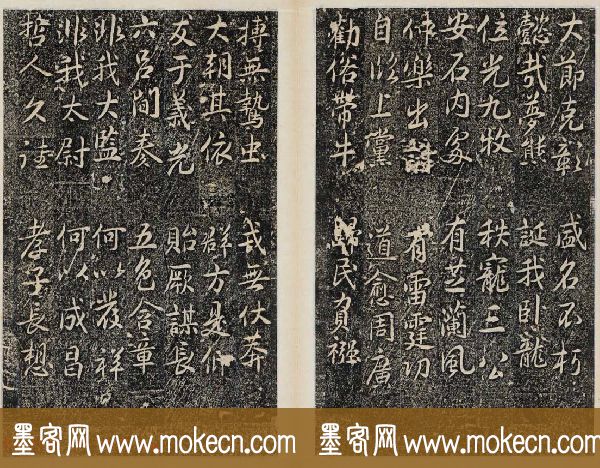 大節克彰 盛名不朽
懿哉夢熊 誕我臥龍
位光九牧 秩寵三公
安石內處 有芝蘭風
仲樂出 有雷霆功
自上黨 道愈周廣
勸俗帶牛 歸民負襁
搏無鷙虫 戎無伏莽
大朝其依 群方是仰
友于義光 貽厥謀長
六呂間奏 五色含章
非我大監 何以發祥
非我太尉 何以成昌
哲人久 孝子長想
墨客网 www.mokecn.com
墨客网 www.mokecn.com